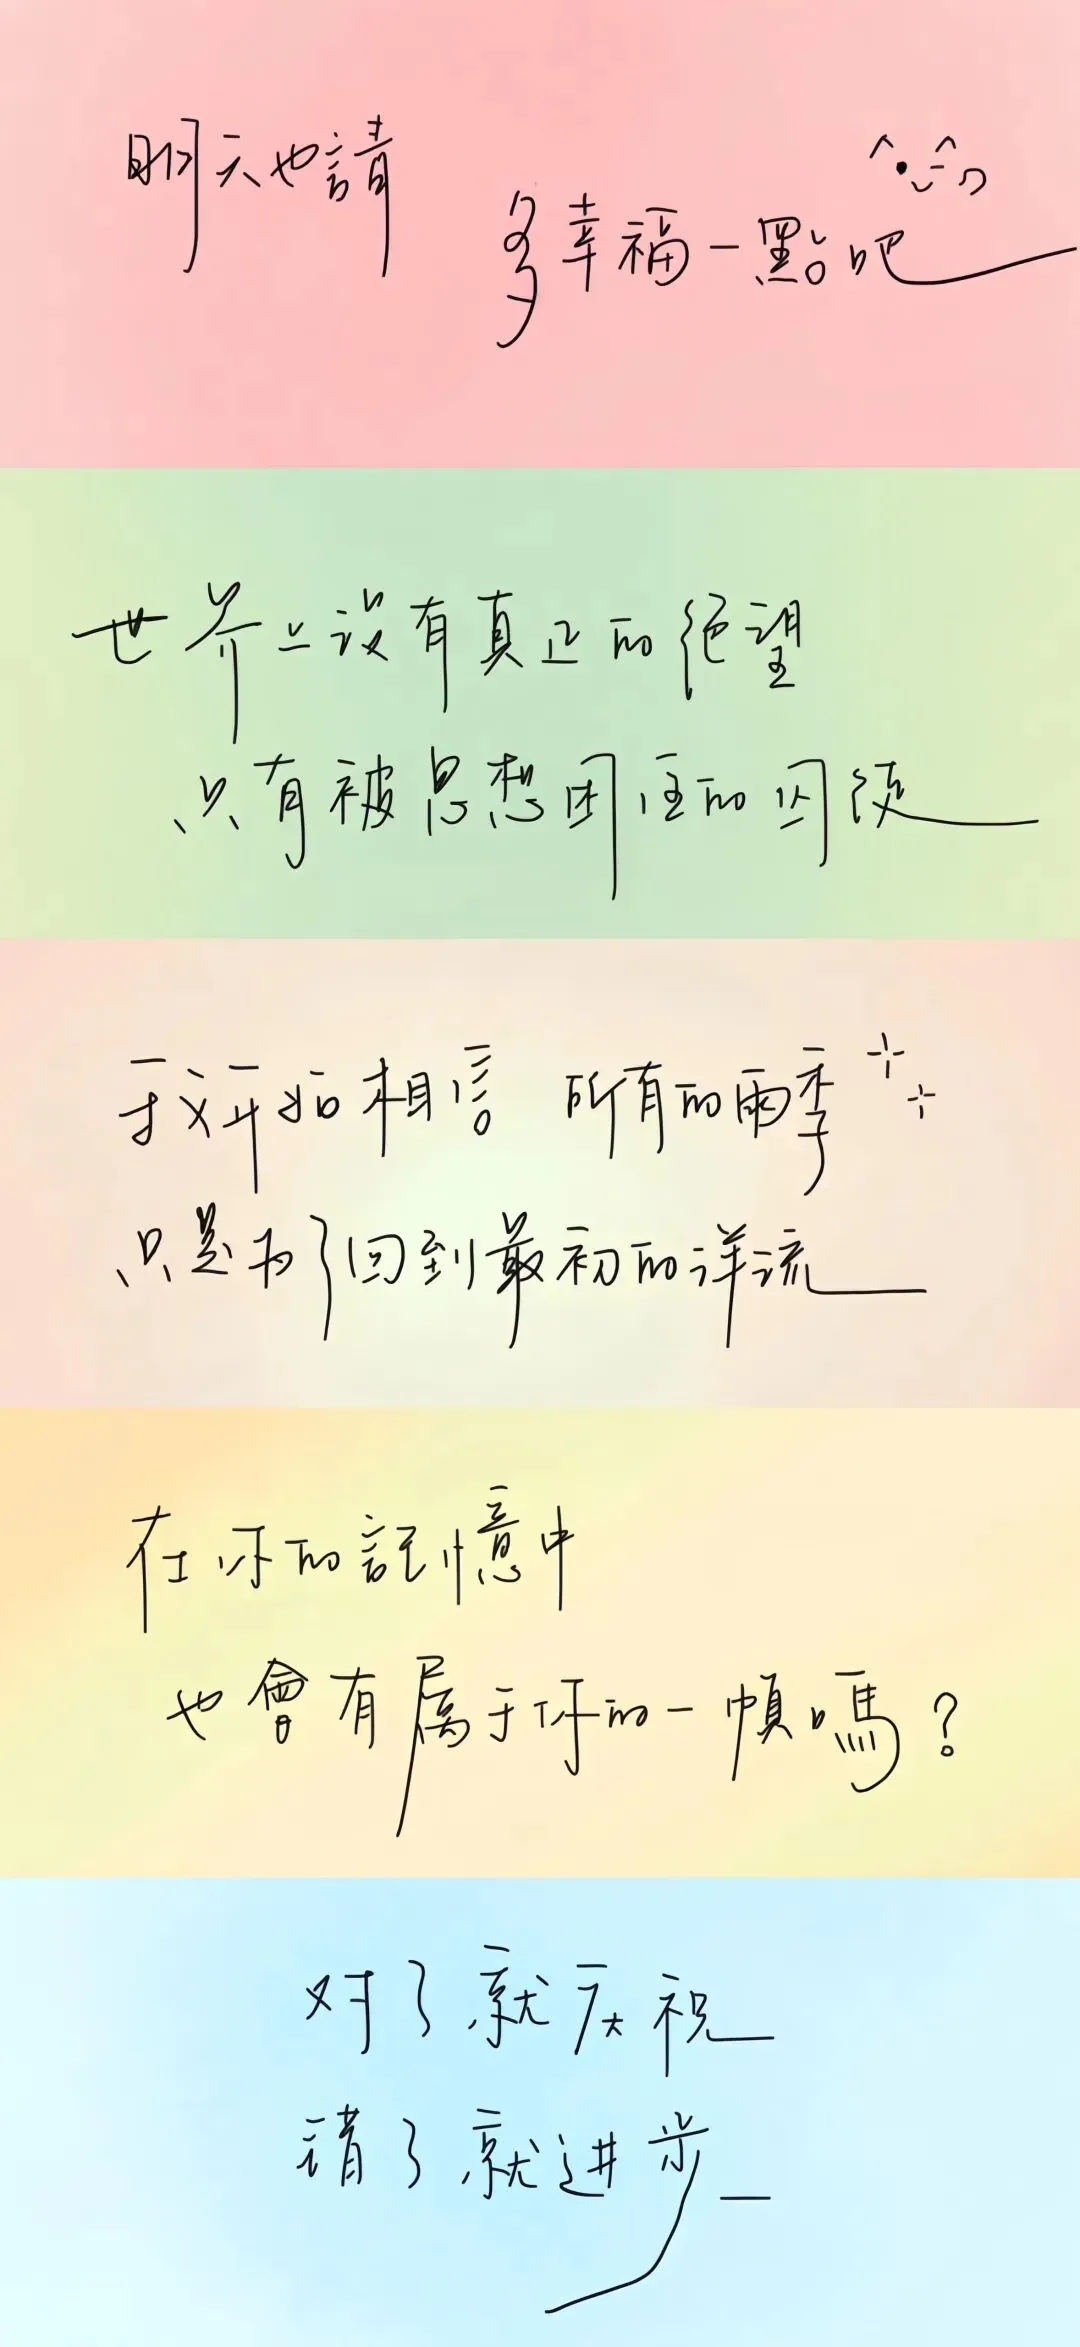 明天也請
多幸福一點吧
世界上没有真正的绝望
只有被思想困住的囚徒
我开始相信 所有的雨季
只是为了回到最初的洋流
在你的記憶中
也會有属于你的一幀嗎？
对了就庆祝
請了就进步